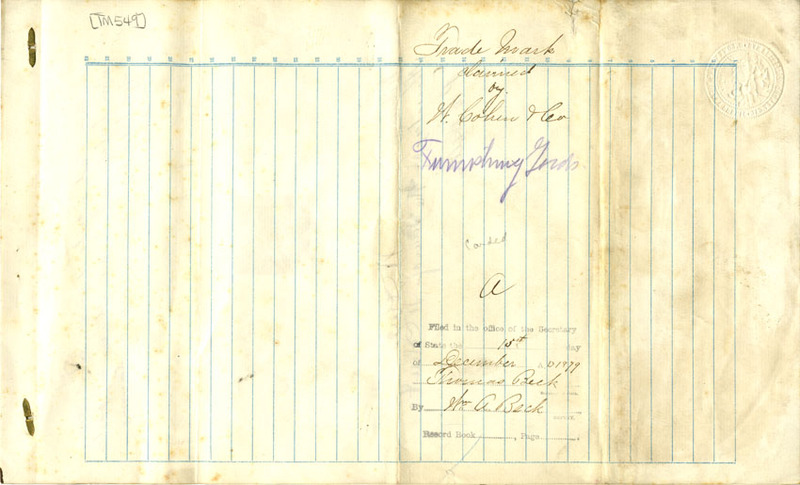 [TM549]
Trade Mark
claimed
by
W. Cohen & Co
Furnishing Goods.
Carded
A
Filed in the office of the Secretary
of State the 15th day
of December A D 1879
Thomas Beck
By Wm A. Beck
Record Book , Page .